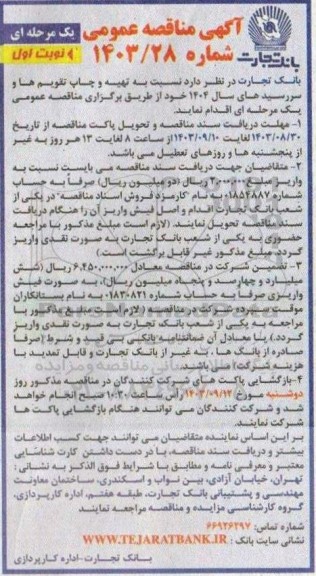 آگهی مناقصه عمومی
شماره ۱۴۰۳/۲۸
یک مرحله ای
نوبت اول
بانک تجارت
بانک تجارت در نظر دارد نسبت به تهیه و چاپ تقویم ها و
سررسید های سال ۱۴۰۴ خود از طریق برگزاری مناقصه عمومی
یک مرحله ای اقدام نماید.
۱- مهلت دریافت سند مناقصه و تحویل پاکت مناقصه از تاریخ
۱۴۰۳/۰۸/۳۰ لغایت ۱۴۰۳/۰۹/۱۰ از ساعت ۸ لغایت ۱۳ هر روز به غیر
از پنجشنبه ها و روزهای تعطیل می باشد.
۲- متقاضیان جهت دریافت سند مناقصه می بایست نسبت به
واریز مبلغ ۲,۰۰۰,۰۰۰ ریال (دو میلیون ریال) صرفاً به حساب
شماره ۰۱۸۵۴۸۸۷ به نام "کارمزد فروش اسناد مناقصه" در یکی از
شعب بانک تجارت اقدام و اصل فیش واریز آن را هنگام دریافت
سند مناقصه تحویل نمایند. (لازم است مبلغ مذکور با مراجعه
حضوری به یکی از شعب بانک تجارت به صورت نقدی واریز
گردد. مبلغ مذکور غیر قابل برگشت است)
۳- تضمین شرکت در مناقصه معادل ۶,۴۵۰,۰۰۰,۰۰۰ ریال (شش
میلیارد و چهارصد و پنجاه میلیون ریال)، به صورت فیش
واریزی صرفاً به حساب شماره ۰۱۸۳۰۸۲۱ به نام بستانکاران
موقت سپرده شرکت در مناقصه (لازم است مبلغ مذکور با
مراجعه به یکی از شعب بانک تجارت به صورت نقدی واریز
گردد.) یا معادل آن ضمانتنامه بانکی بی قید و شرط (صرفاً
صادره از بانک ها، به غیر از بانک تجارت و قابل تمدید با
هزینه شرکت) می باشد.
۴- بازگشایی پاکت های شرکت کنندگان در مناقصه مذکور روز
دوشنبه مورخ ۱۴۰۳/۰۹/۱۲ رأس ساعت ۱۰:۳۰ صبح انجام خواهد
شد و شرکت کنندگان می توانند هنگام بازگشایی پاکت ها
شرکت نمایند.
بر این اساس نماینده متقاضیان می توانند جهت کسب اطلاعات
بیشتر و دریافت سند مناقصه، با در دست داشتن کارت شناسایی
معتبر و معرفی نامه و مطابق با شرایط فوق الذکر به نشانی :
تهران، خیابان آزادی، بین نواب و اسکندری، ساختمان معاونت
مهندسی و پشتیبانی بانک تجارت، طبقه هفتم، اداره کارپردازی،
گروه کارشناسی مزایده و مناقصه مراجعه نمایند
شماره تماس: ۶۶۹۳۶۲۹۷
نشانی سایت بانک : WWW.TEJARATBANK.IR
بانک تجارت-اداره کارپردازی